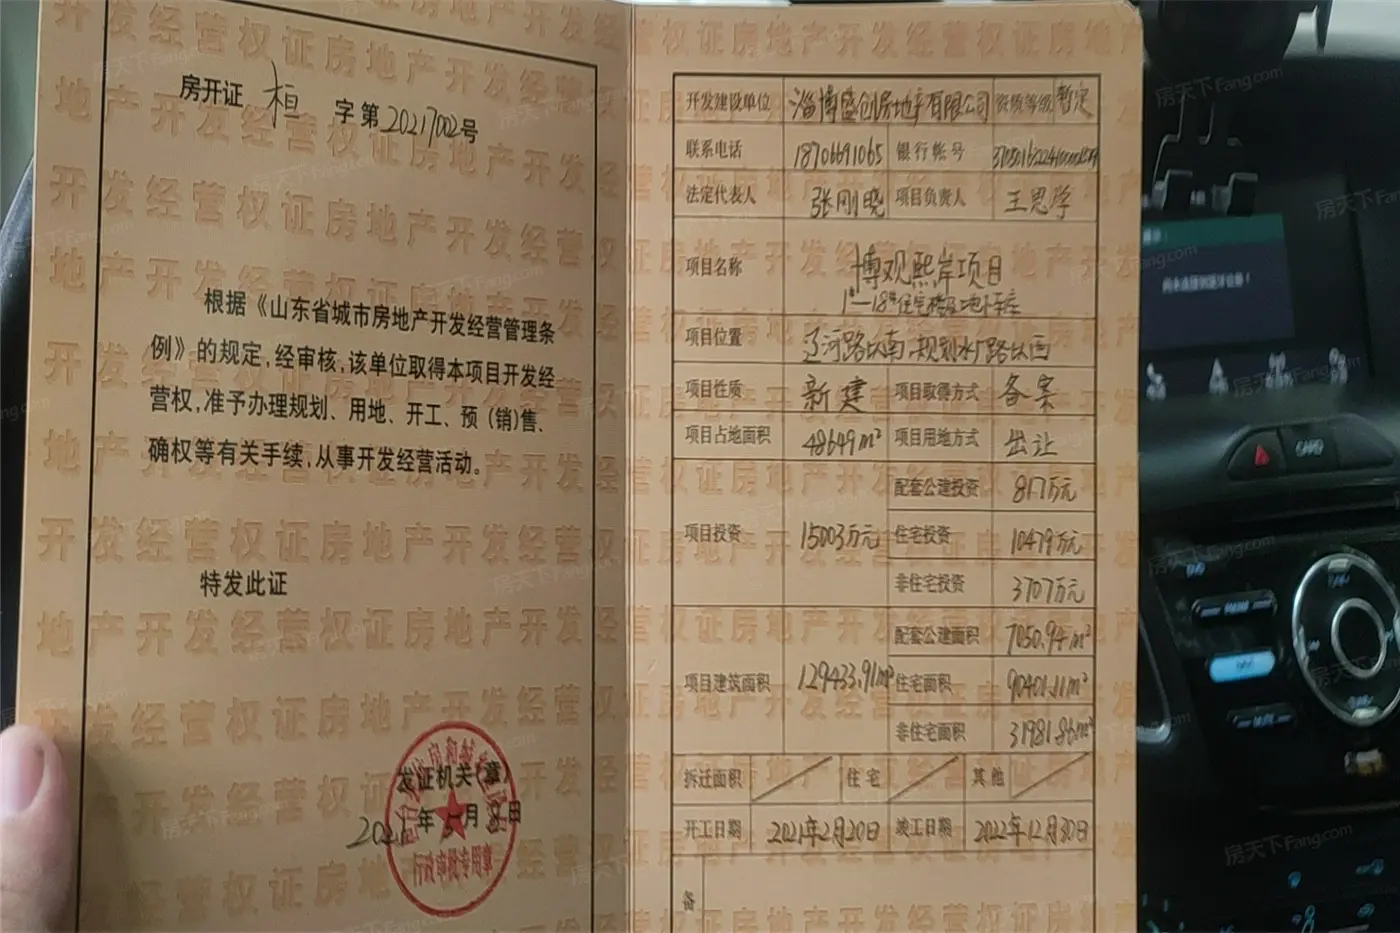 房开证 桓 字第2021702号
根据《山东省城市房地产开发经营管理条
例》的规定,经审核,该单位取得本项目开发经
营权,准予办理规划、用地、开工、预(销)售、
确权等有关手续,从事开发经营活动。
特发此证
发证机关(章)
2021年5月 日
行政审批专用章
开发建设单位 淄博盛创房地产有限公司 资质等级 暂定
联系电话 18706691065 银行帐号
法定代表人 张刚晓 项目负责人 王思学
项目名称 博观熙岸项目
1#—18#住宅楼及地下车库
项目位置 辽河路以南、规划水厂路以西
项目性质 新建 项目取得方式 备案
项目占地面积 48649m² 项目用地方式 出让
项目投资 15003万元 配套公建投资 817万元
住宅投资 10479万元
非住宅投资 3707万元
项目建筑面积 129433.91m² 配套公建面积 7050.94m²
住宅面积 90401.11m²
非住宅面积 31981.86m²
拆迁面积 / 住宅 / 其他 /
开工日期 2021年2月20日 竣工日期 2022年12月30日
备
房天下Fang.com